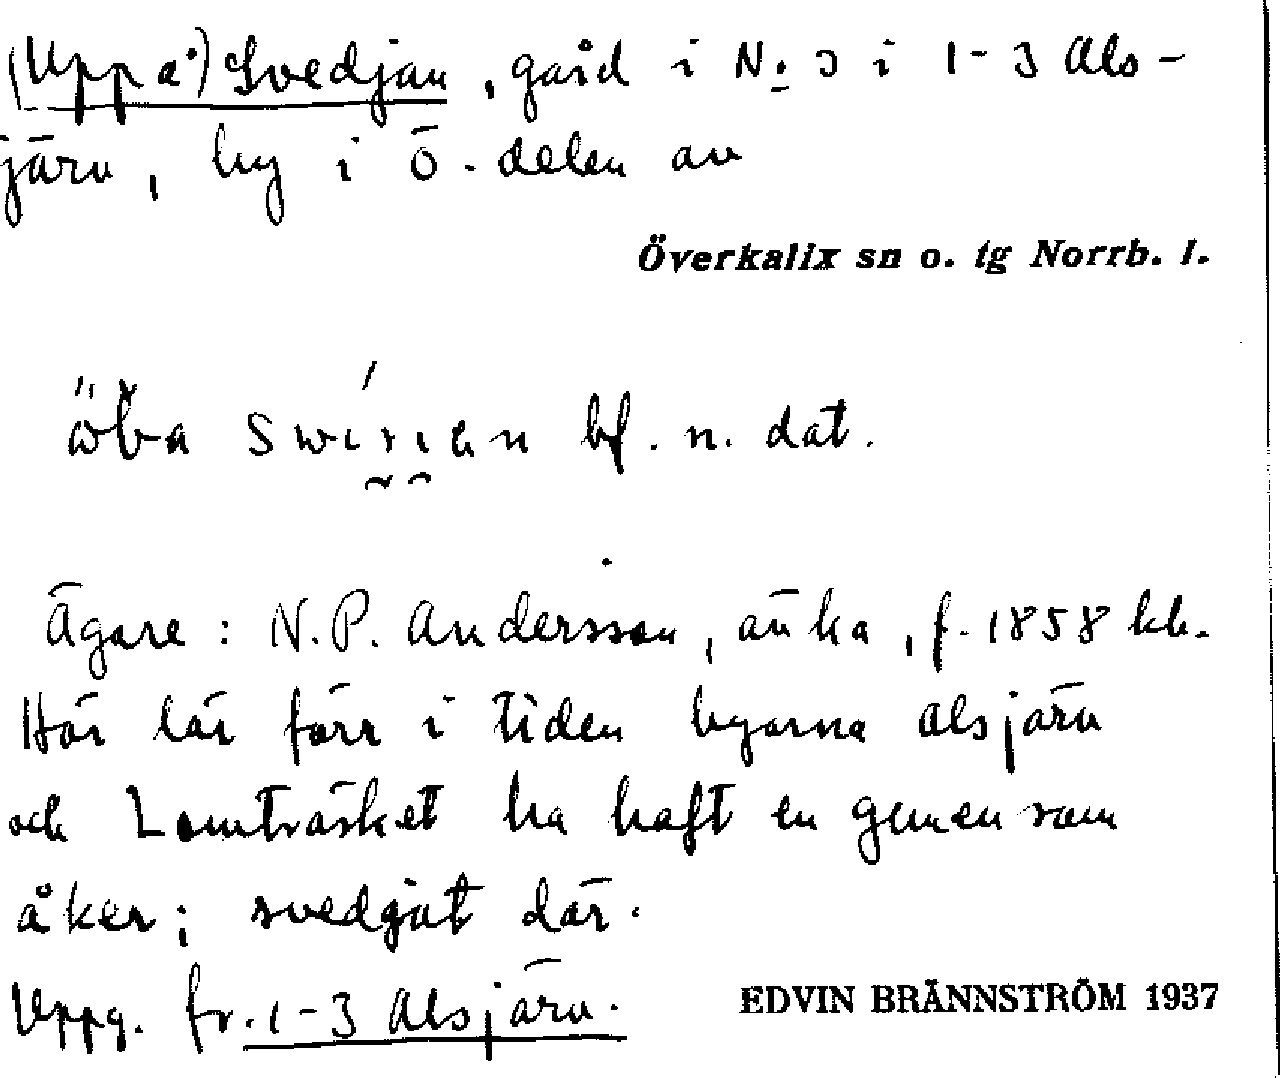 (Uppå) Svedjan, gård i No 3 i 1-3 Als-
järv, by i Ö-delen av
Överkalix sn o. tg Norrb. l.
bf. n. dat.
Ägare: N.P. Andersson, änka, f. 1858 kk.
Här lär förr i tiden byarna Alsjärv
och Lomträsket ha haft en gemensam
åker; svedjat där.
Uppg. fr. 1-3 Alsjärv.
EDVIN BRÄNNSTRÖM 1937